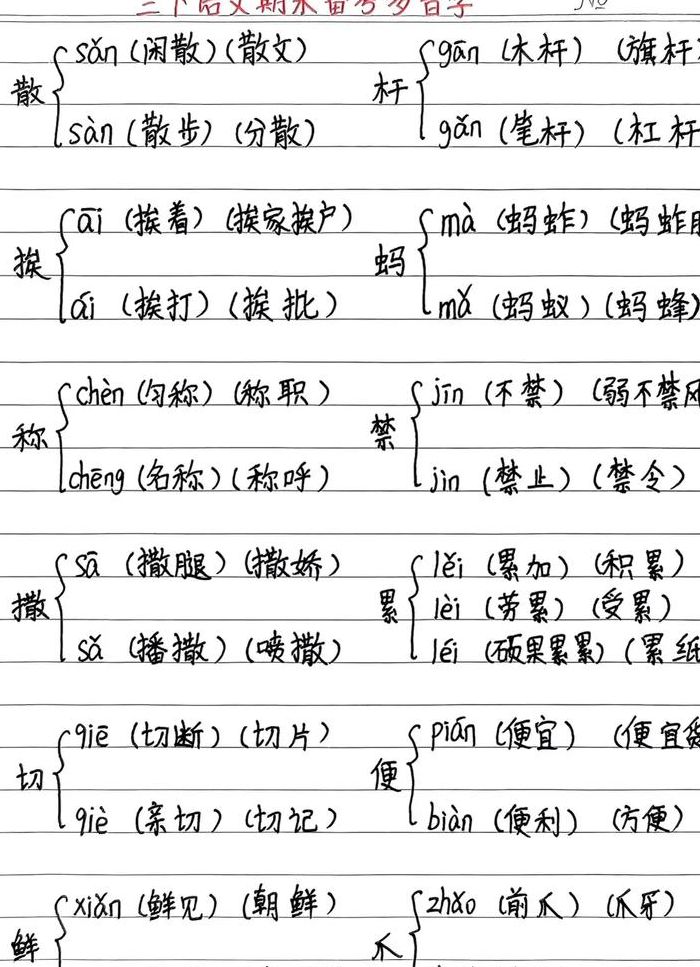 三下语文期末备考多音字
散
sǎn (闲散) (散文)
sàn (散步) (分散)
杆
gān (木杆) (旗杆
gǎn (笔杆) (杠杆
挨
āi (挨着) (挨家挨户)
ái (挨打) (挨批)
蚂
mà (蚂蚱) (蚂蚱
mǎ (蚂蚁) (蚂蜂)
称
chèn (匀称) (称职)
chēng (名称) (称呼)
禁
jīn (不禁) (弱不禁风
jìn (禁止) (禁令)
撒
sā (撒腿) (撒娇)
sǎ (播撒) (喷撒)
累
lěi (累加) (积累)
lèi (劳累) (受累)
léi (硕果累累) (累纸
切
qiē (切断) (切片)
qiè (亲切) (切记)
便
pián (便宜) (便宜货
biàn (便利) (方便)
鲜
xiǎn (鲜见) (朝鲜)
爪
zhǎo (前爪) (爪牙)